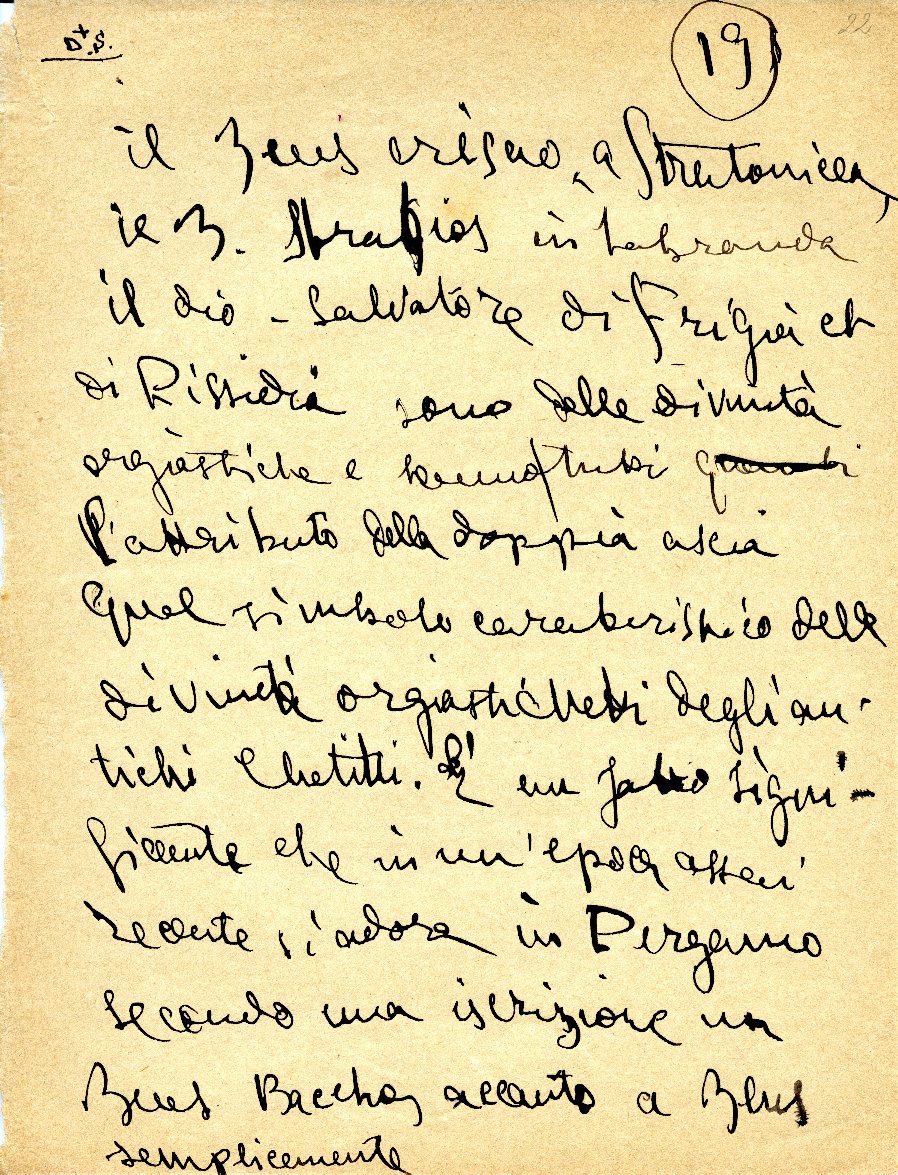 D+.S.
19
22
il Zeus crisao, a Stratonicea,
le Z. Stratios in Labranda
il dio - Salvatore di Frigia et
di Pissidia sono delle divinità
orgiastiche e
l'attributo della doppia ascia
qual simbolo caratteristico delle
divinità degli an-
tichi Chetitti. E' un fatto signi-
ficante che in un'epoca assai
recente si adora in Pergamo
secondo una iscrizione un
Zeus Bacchos accanto a Zeus
semplicemente